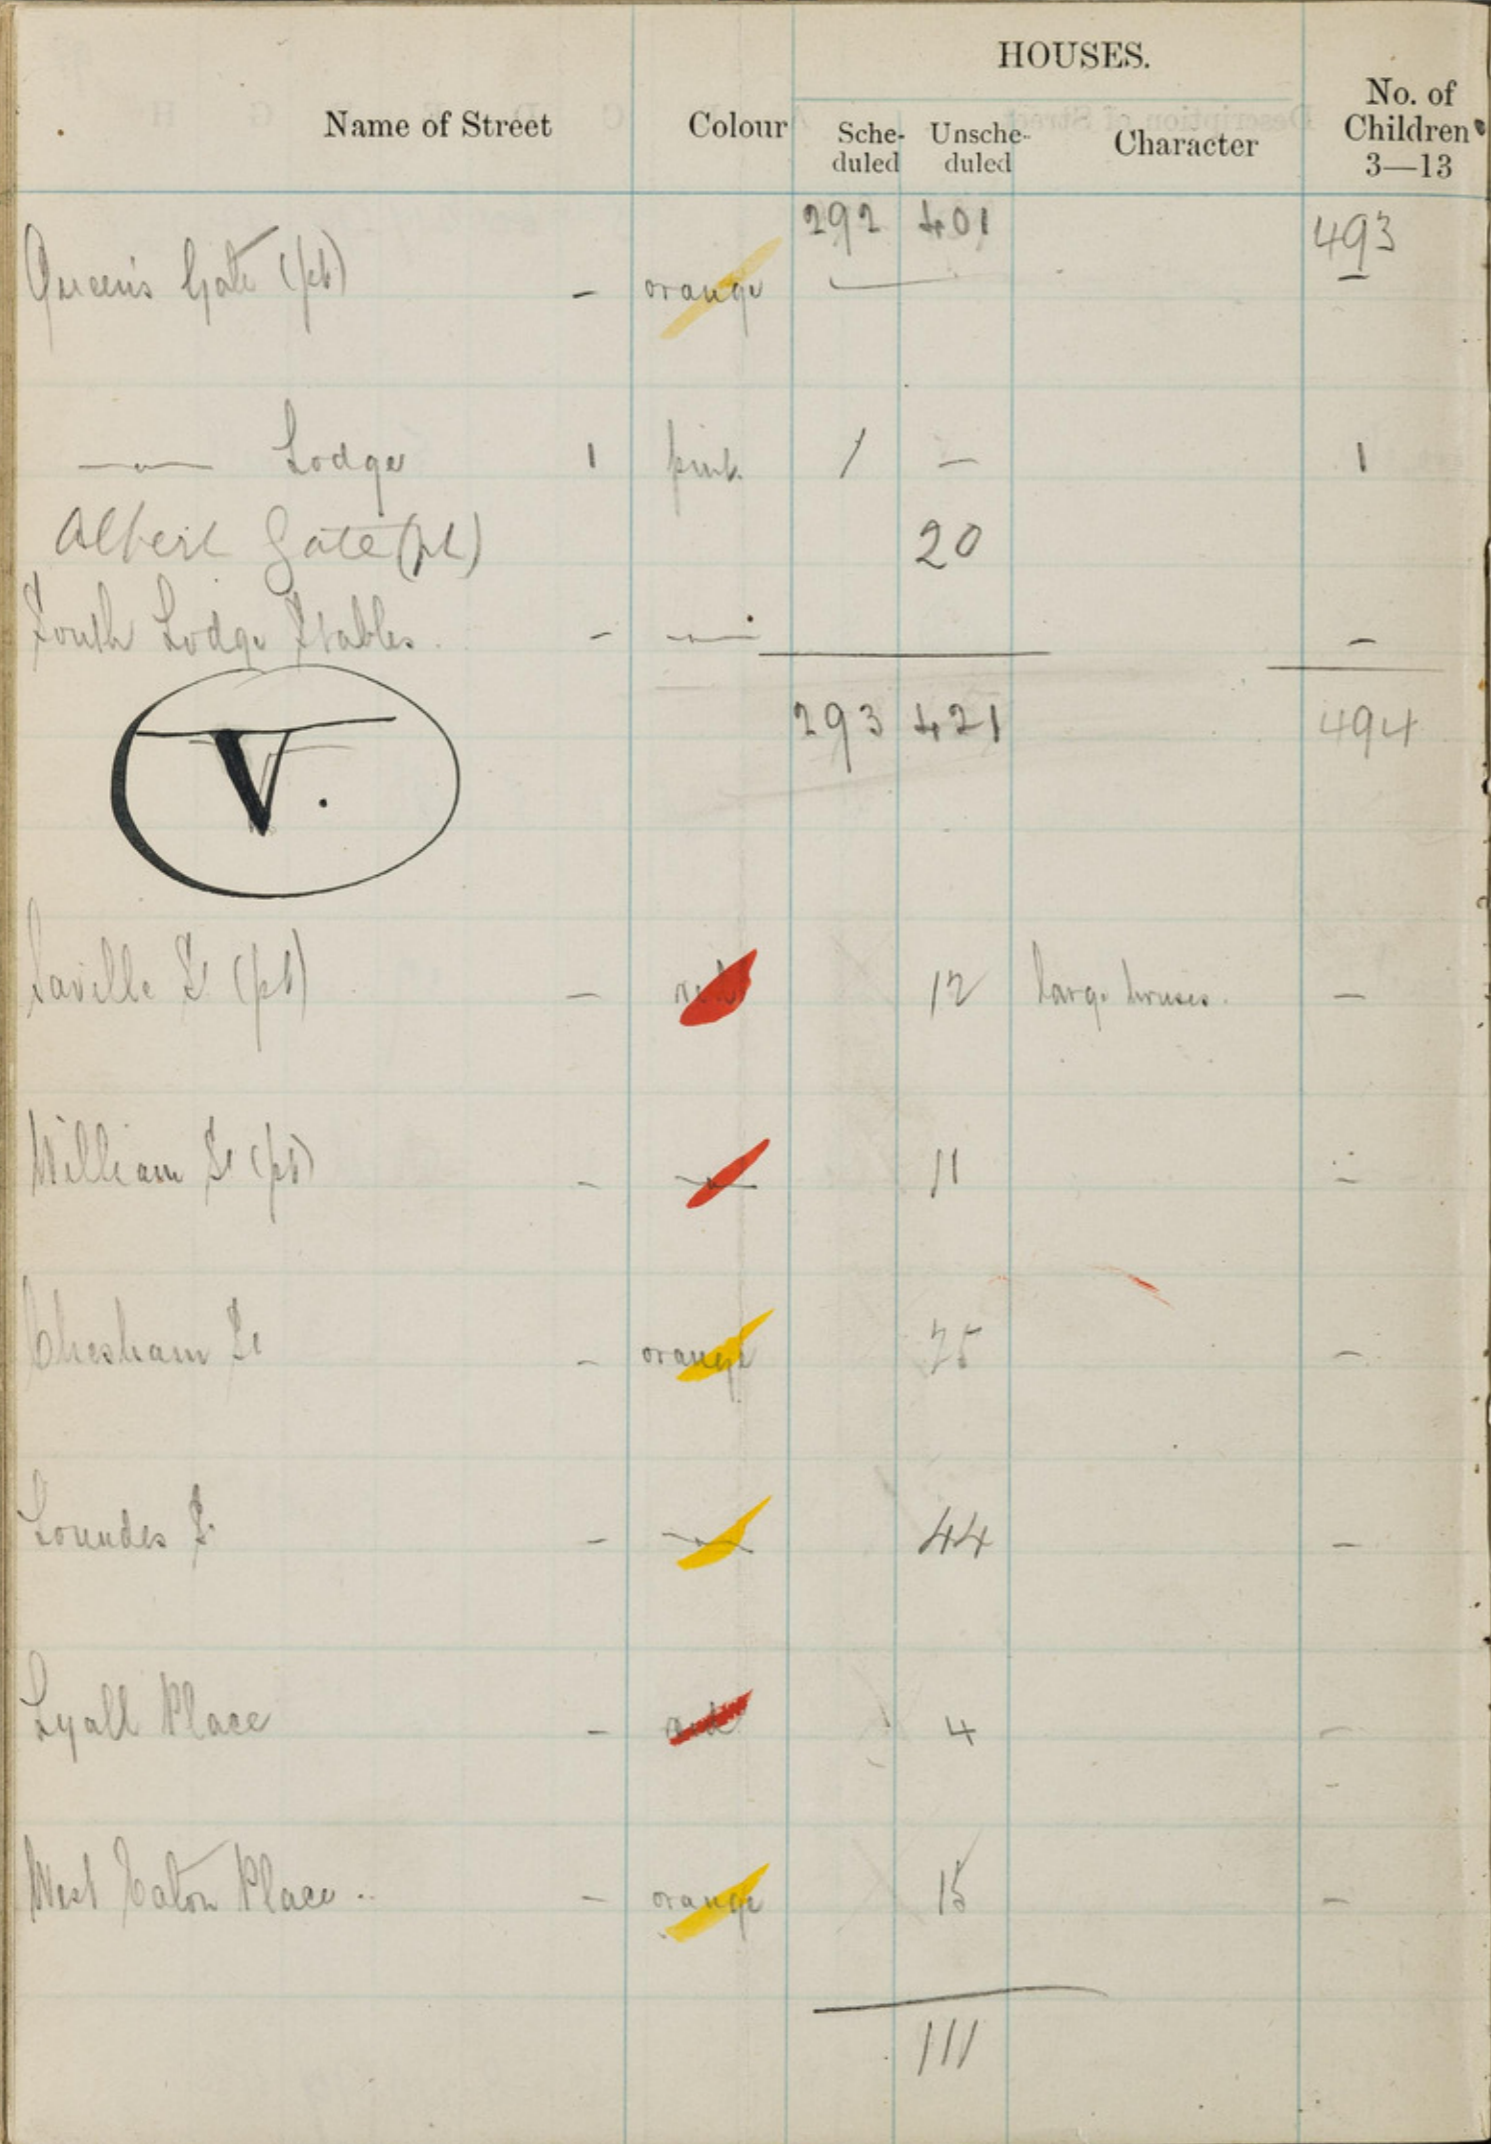 HOUSES.
Name of Street Colour Sche-duled Unsche-duled Character No. of Children 3—13
292 401 493
Queen's Gate (pt) - orange
—„— Lodge 1 pink 1 — 1
Albert Gate (pt) 20
South Lodge Stables. - —„— -
293 421 494
V.
Saville St (pt) - red 12 large houses. -
William St (pt) - —„— 11 -
Chesham St - orange 25 -
Lowndes S. - —„— 44 -
Lyall Place - red 4 -
West Eaton Place .. - orange 15 -
111